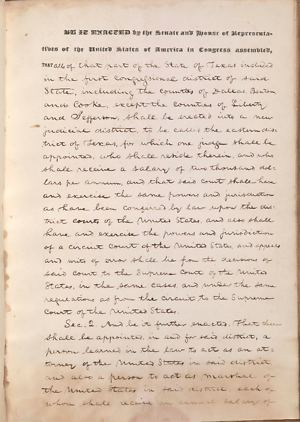 BE IT ENACTED by the Senate and House of Representa-
tives of the United States of America in Congress assembled,
THAT all of that part of the State of Texas included
in the first congressional district of said
State, including the counties of Dallas
and Cooke, except the counties of Liberty
and Jefferson, shall be erected into a new
judicial district, to be called the eastern dis-
trict of Texas, for which one judge shall be
appointed, who shall reside therein, and who
shall receive a salary of two thousand dol-
lars per annum, and that said court shall have
and exercise the same powers and jurisdiction
as have been conferred by law upon the dis-
trict courts of the United States, and also shall
have and exercise the powers and jurisdiction
of a circuit court of the United States, and appeals
and writs of error shall lie from the decisions of
said court to the Supreme Court of the United
States, in the same cases, and under the same
regulations as from the circuit to the Supreme
Court of the United States.
Sec. 2 And be it further enacted, That there
shall be appointed, in and for said district, a
person learned in the law to act as an at-
torney of the United States in said district
and also a person to act as marshal of
the United States in said district, each of
whom shall receive an annual salary of